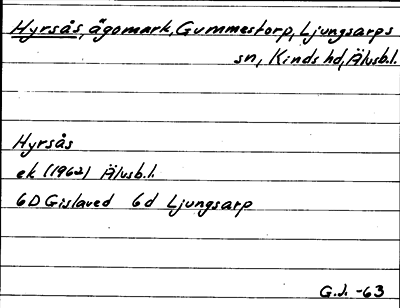 Hyrsås, ägomark, Gummestorp, Ljungsarps
sn, Kinds hd, Älvsb.l.
Hyrsås
ek (1962) Älvsb.l.
6D Gislaved 6d Ljungsarp
G.J. -63